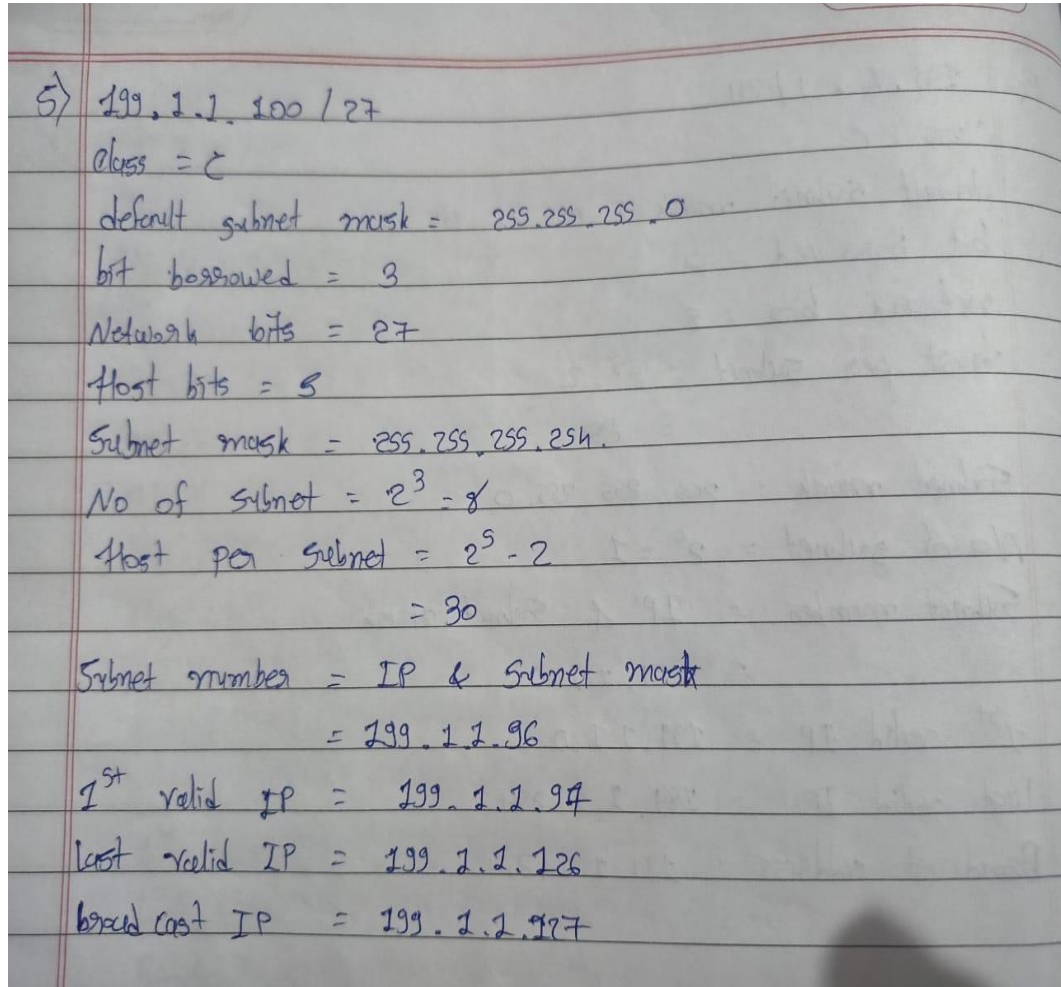 5) 199.1.1.100 / 27
Class = C
default subnet mask = 255.255.255.0
bit borrowed = 3
Network bits = 27
Host bits = 5
Subnet mask = 255.255.255.254.
No of subnet = 2^3 = 8
Host per subnet = 2^5 - 2
= 30
Subnet number = IP & Subnet mask
= 199.1.1.96
1st valid IP = 199.1.1.97
last valid IP = 199.1.1.126
broad cast IP = 199.1.1.127